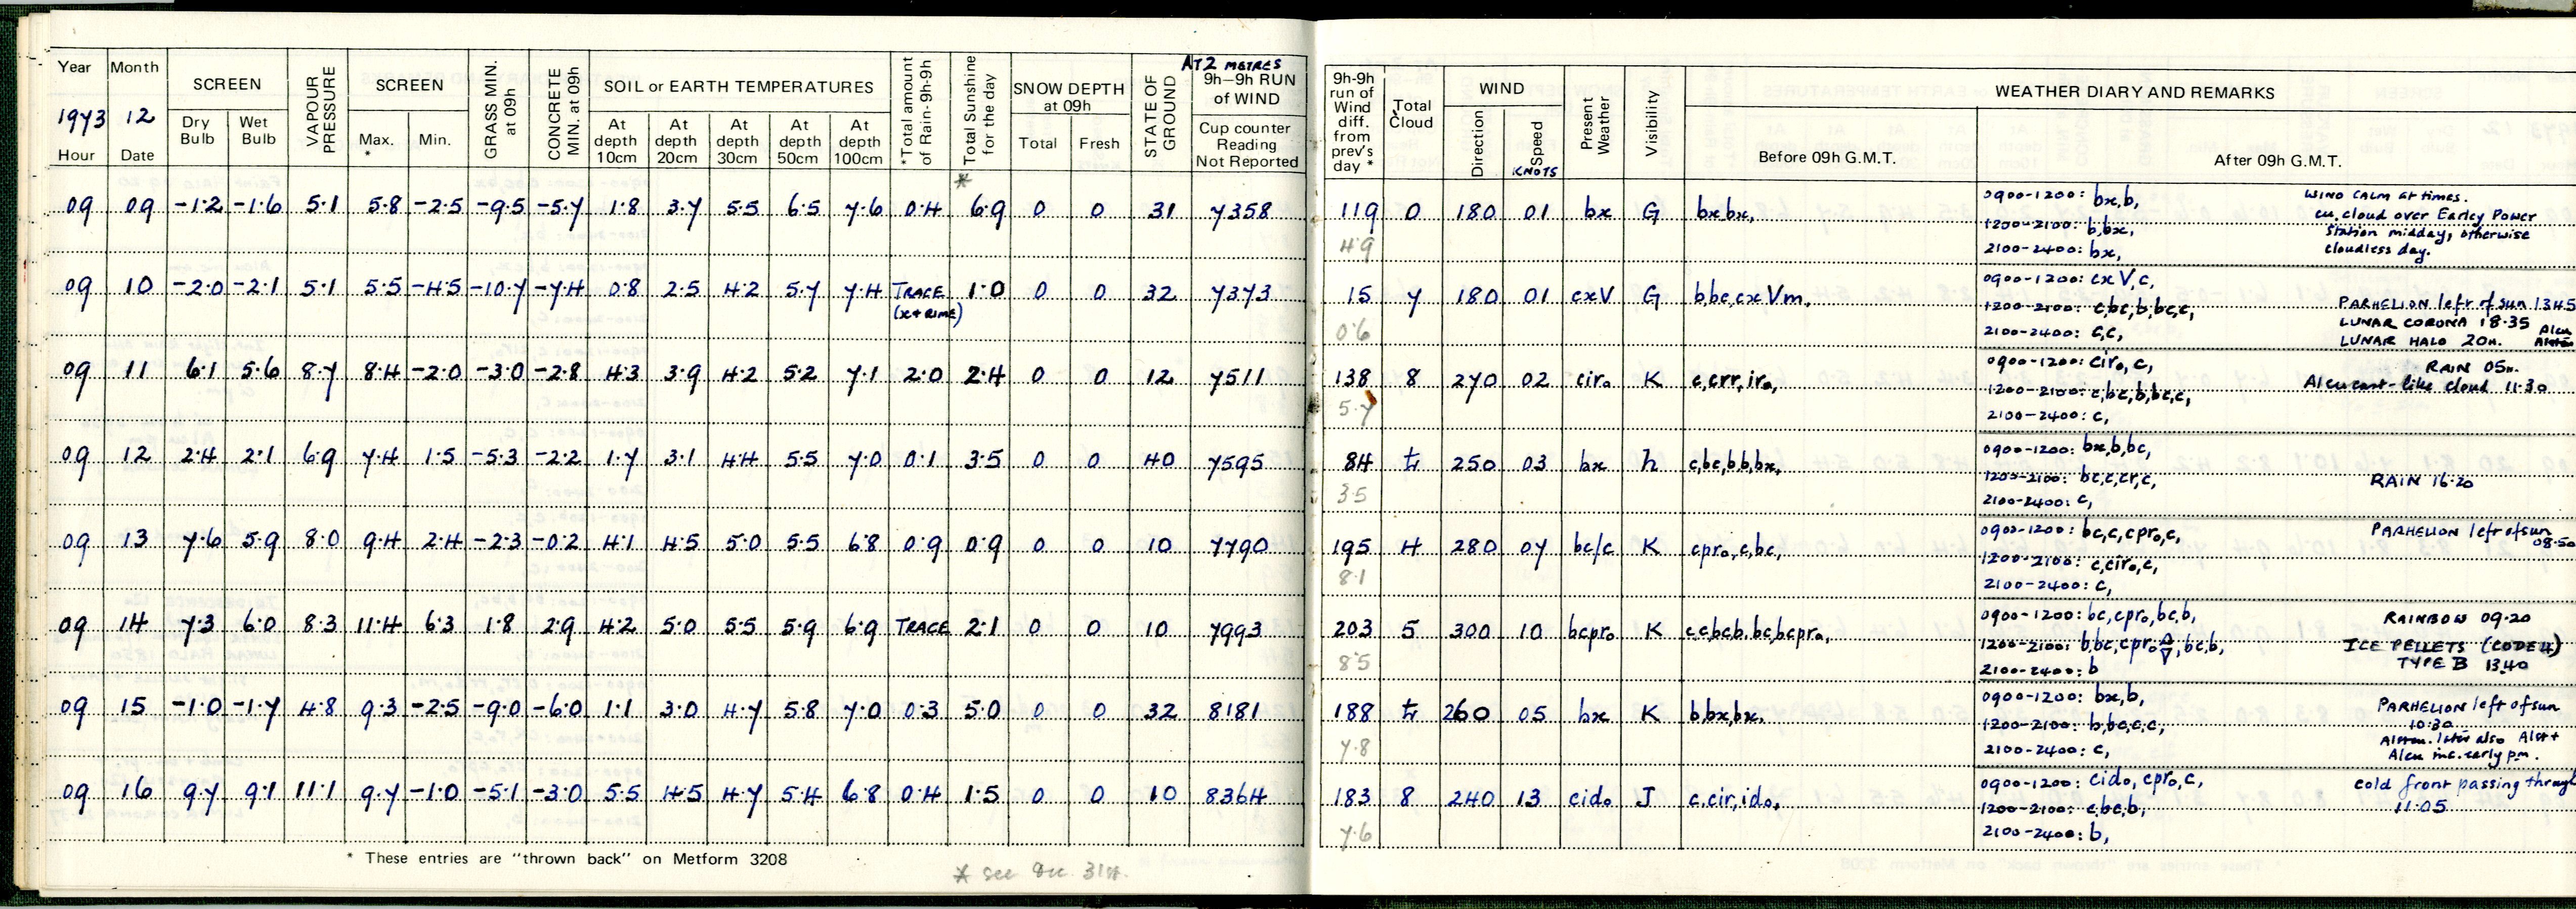 AT 2 METRES
Year Month SCREEN VAPOUR PRESSURE SCREEN GRASS MIN. at 09h CONCRETE MIN. at 09h SOIL or EARTH TEMPERATURES *Total amount of Rain-9h-9h Total Sunshine for the day SNOW DEPTH at 09h STATE OF GROUND 9h—9h RUN of WIND
1973 12 Dry Bulb Wet Bulb Max. * Min. At depth 10cm At depth 20cm At depth 30cm At depth 50cm At depth 100cm Total Fresh Cup counter Reading Not Reported
Hour Date
*
09 09 -1.2 -1.6 5.1 5.8 -2.5 -9.5 -5.7 1.8 3.7 5.5 6.5 7.6 0.4 6.9 0 0 31 7358
09 10 -2.0 -2.1 5.1 5.5 -4.5 -10.7 -7.4 0.8 2.5 4.2 5.7 7.4 TRACE 1.0 0 0 32 7373
(x+RIME)
09 11 6.1 5.6 8.7 8.4 -2.0 -3.0 -2.8 4.3 3.9 4.2 5.2 7.1 2.0 2.4 0 0 12 7511
09 12 2.4 2.1 6.9 7.4 1.5 -5.3 -2.2 1.7 3.1 4.4 5.5 7.0 0.1 3.5 0 0 40 7595
09 13 7.6 5.9 8.0 9.4 2.4 -2.3 -0.2 4.1 4.5 5.0 5.5 6.8 0.9 0.9 0 0 10 7790
09 14 7.3 6.0 8.3 11.4 6.3 1.8 2.9 4.2 5.0 5.5 5.9 6.9 TRACE 2.1 0 0 10 7993
09 15 -1.0 -1.7 4.8 9.3 -2.5 -9.0 -6.0 1.1 3.0 4.7 5.8 7.0 0.3 5.0 0 0 32 8181
09 16 9.7 9.1 11.1 9.7 -1.0 -5.1 -3.0 5.5 4.5 4.7 5.4 6.8 0.4 1.5 0 0 10 8364
* These entries are "thrown back" on Metform 3208
* see Dec. 31st.
9h-9h run of Wind diff. from prev's day * Total Cloud WIND Present Weather Visibility WEATHER DIARY AND REMARKS
Direction Speed KNOTS Before 09h G.M.T. After 09h G.M.T.
119 0 180 01 bx G bxbx, 0900-1200: bx,b, WIND CALM at times.
4.9 1200-2100: b,bx, cu. cloud over Earley Power
Station midday, otherwise
2100-2400: bx, cloudless day.
15 7 180 01 cxV G b,bc,cxVm, 0900-1200: cxV,c,
1200-2100: c,bc,b,bc,c, PARHELION left of sun 1345
0.6 2100-2400: c,c, LUNAR CORONA 18.35 Alcu
LUNAR HALO 20h.
138 8 270 02 cir₀ K c,crr,ir₀, 0900-1200: cir₀,c, RAIN 05h.
5.7 1200-2100: c,bc,b,bc,c, Alcu cast-like cloud 11.30
2100-2400: c,
84 250 03 bx h c,bc,b,b,bx, 0900-1200: bx,b,bc,
3.5 1200-2100: bc,c,cr,c, RAIN 16.20
2100-2400: c,
195 4 280 07 bc/c K cpr₀,c,bc, 0900-1200: bc,c,cpr₀,c, PARHELION left of sun
08.50
8.1 1200-2100: c,cir₀,c,
2100-2400: c,
203 5 300 10 bcpr₀ K c,cbcb,bc,bcpr₀, 0900-1200: bc,cpr₀,bc,b, RAINBOW 09.20
8.5 1200-2100: b,bc,cpr₀,bc,b, ICE PELLETS (CODE 4)
2100-2400: b TYPE B 1340
188 260 05 bx K b,bx,bx, 0900-1200: bx,b, PARHELION left of sun
7.8 1200-2100: b,bc,c,c, 10.30
later also Alst+
2100-2400: c, Alcu inc. early pm.
183 8 240 13 cid₀ J c,cir,id₀, 0900-1200: cid₀,cpr₀,c, cold front passing through
7.6 1200-2100: c,bc,b, 11.05
2100-2400: b,